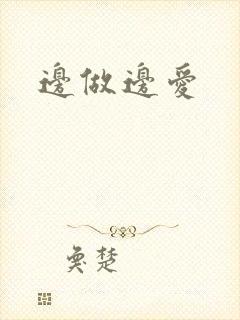 邊做邊愛
奐楚